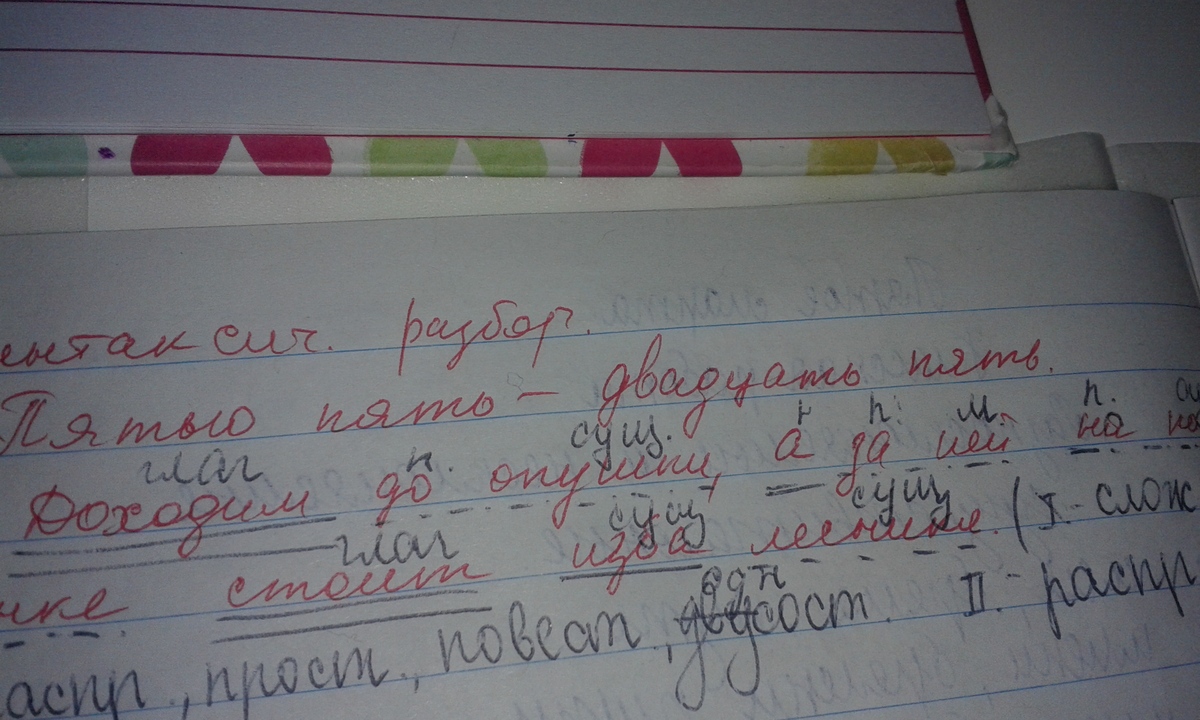 ентаксич. разбор.
Пятью пять – двадцать пять.
глаг п. сущ. п. м. п.
Доходим до опушки, а за ней на
глаг сущ сущ
стоит изба лесника. (I. слож
един
аспр., прост., повест, дву сост. II. распр